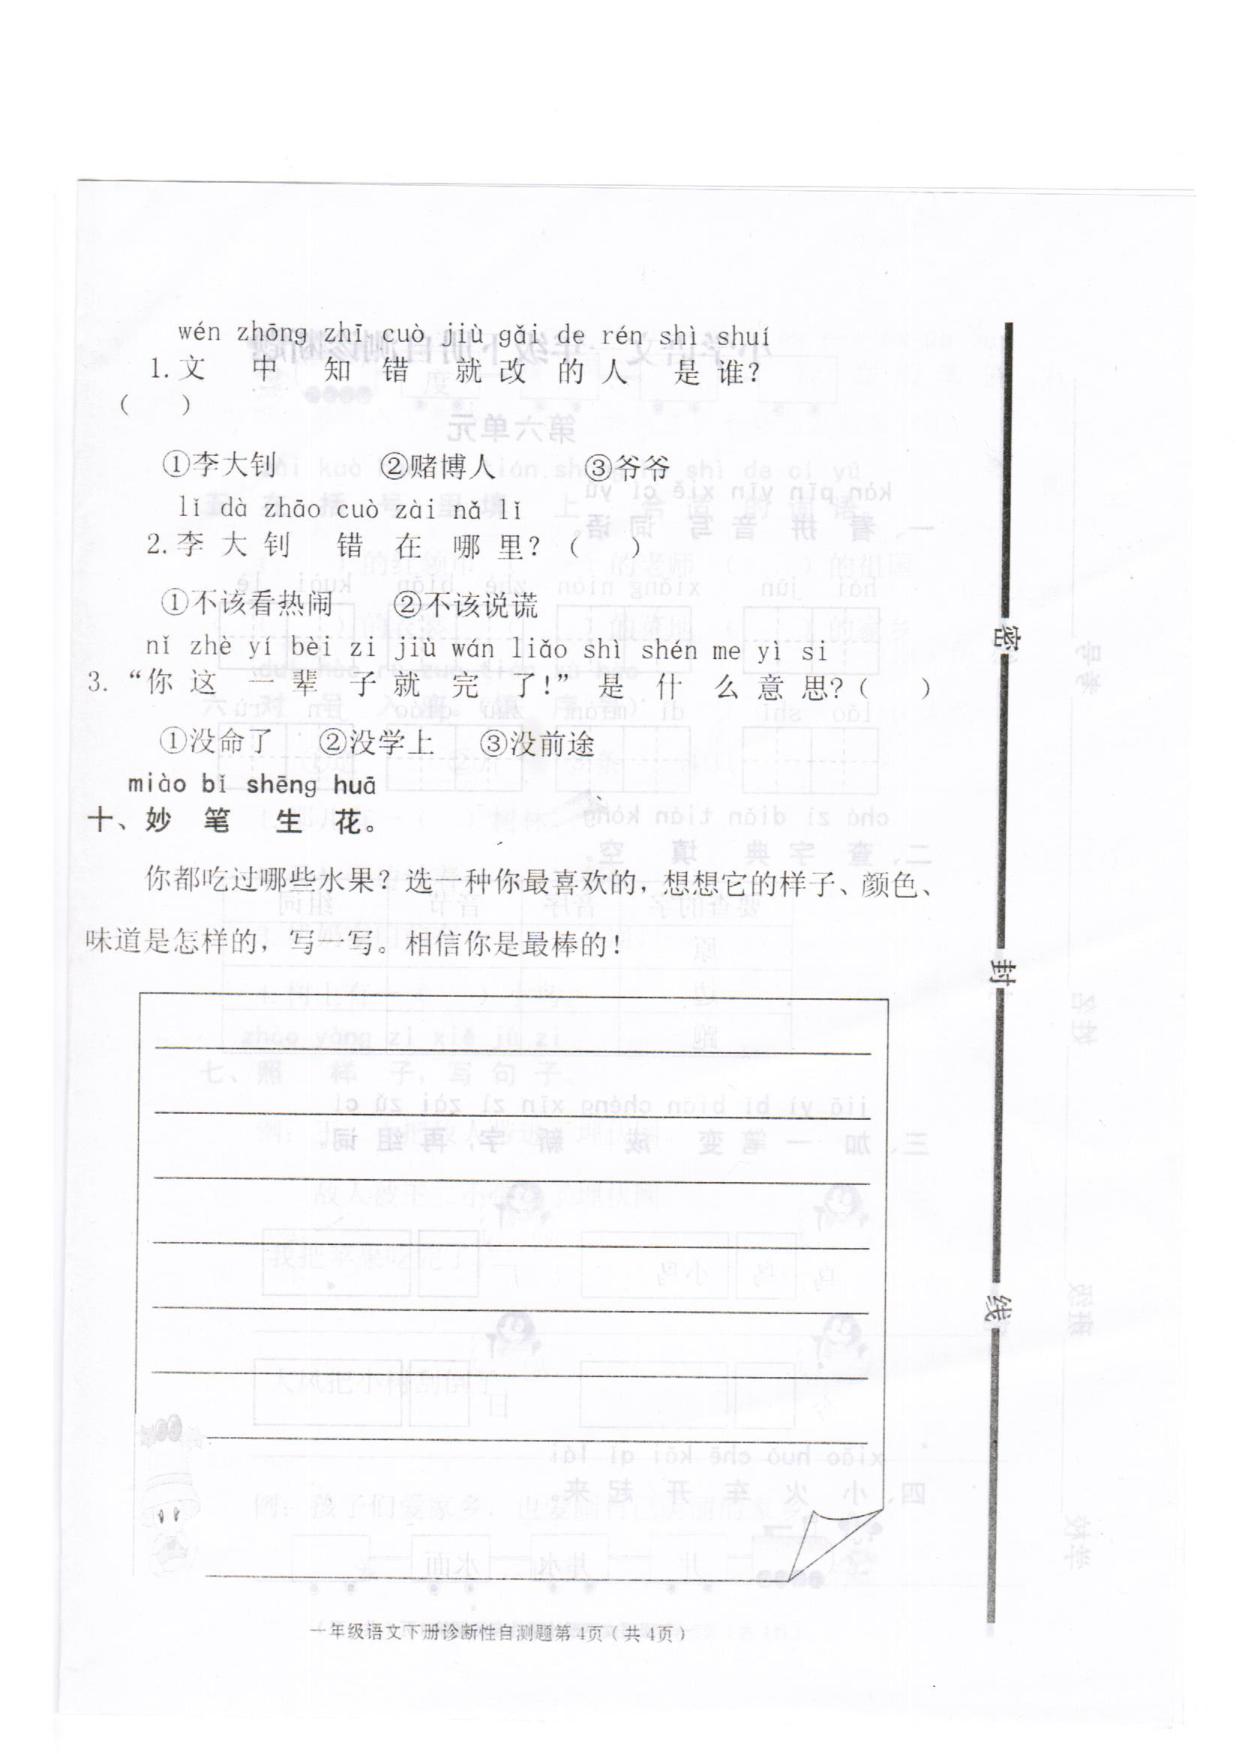 wén zhōng zhī cuò jiù gǎi de rén shì shuí
1.文 中 知 错 就 改 的 人 是 谁?
( )
①李大钊 ②赌博人 ③爷爷
lǐ dà zhāo cuò zài nǎ lǐ
2.李 大 钊 错 在 哪 里? ( )
①不该看热闹 ②不该说谎
nǐ zhè yí bèi zi jiù wán liǎo shì shén me yì si
3. “你 这 一 辈 子 就 完 了!” 是 什 么 意 思? ( )
①没命了 ②没学上 ③没前途
miào bǐ shēng huā
十、妙 笔 生 花。
你都吃过哪些水果? 选一种你最喜欢的, 想想它的样子、颜色、
味道是怎样的, 写一写。相信你是最棒的!
一年级语文下册诊断性自测题第4页 (共4页)
密
封
线